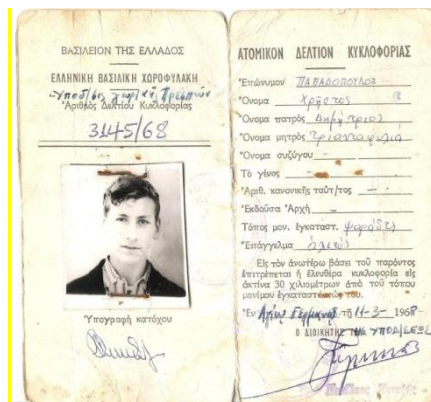 ΒΑΣΙΛΕΙΟΝ ΤΗΣ ΕΛΛΑΔΟΣ
ΕΛΛΗΝΙΚΗ ΒΑΣΙΛΙΚΗ ΧΩΡΟΦΥΛΑΚΗ
Ἀριθμὸς Δελτίου Κυκλοφορίας
3145/68
Ὑπογραφὴ κατόχου
ΑΤΟΜΙΚΟΝ ΔΕΛΤΙΟΝ ΚΥΚΛΟΦΟΡΙΑΣ
Ἐπώνυμον ΠΑΠΑΔΟΠΟΥΛΟΣ
Ὄνομα Χρῆστος
Ὄνομα πατρὸς Δημήτριος
Ὄνομα μητρὸς Τριανταφυλιά
Ὄνομα συζύγου -
Τὸ γένος -
Ἀριθ. κανονικῆς ταὐτ/τος -
Ἐκδοῦσα Ἀρχὴ -
Τόπος μον. ἐγκαταστ. Ψαράδες
Ἐπάγγελμα ἁλιεύς
Εἰς τὸν ἀνωτέρω βάσει τοῦ παρόντος
ἐπιτρέπεται ἡ ἐλευθέρα κυκλοφορία εἰς
ἀκτῖνα 30 χιλιομέτρων ἀπὸ τοῦ τόπου
μονίμου ἐγκαταστάσεώς του.
Ἐν Ἁγίῳ Γερμανῷ τῇ 11-3-1968
Ο ΔΙΟΙΚΗΤΗΣ